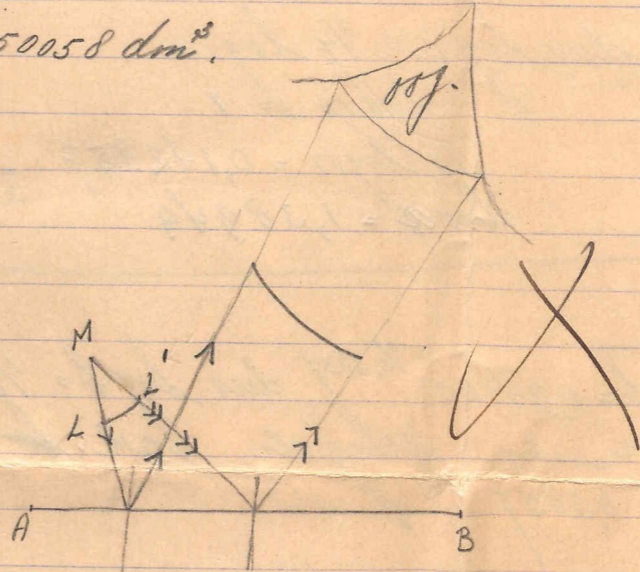 50058 dm³.
oog.
M
L'
L
A
B